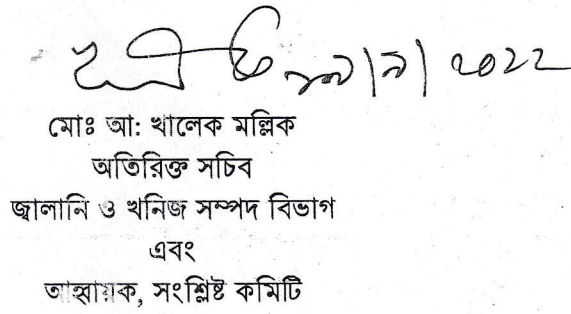 মোঃ আ: খালেক মল্লিক
অতিরিক্ত সচিব
জ্বালানি ও খনিজ সম্পদ বিভাগ
এবং
আহ্বায়ক, সংশ্লিষ্ট কমিটি